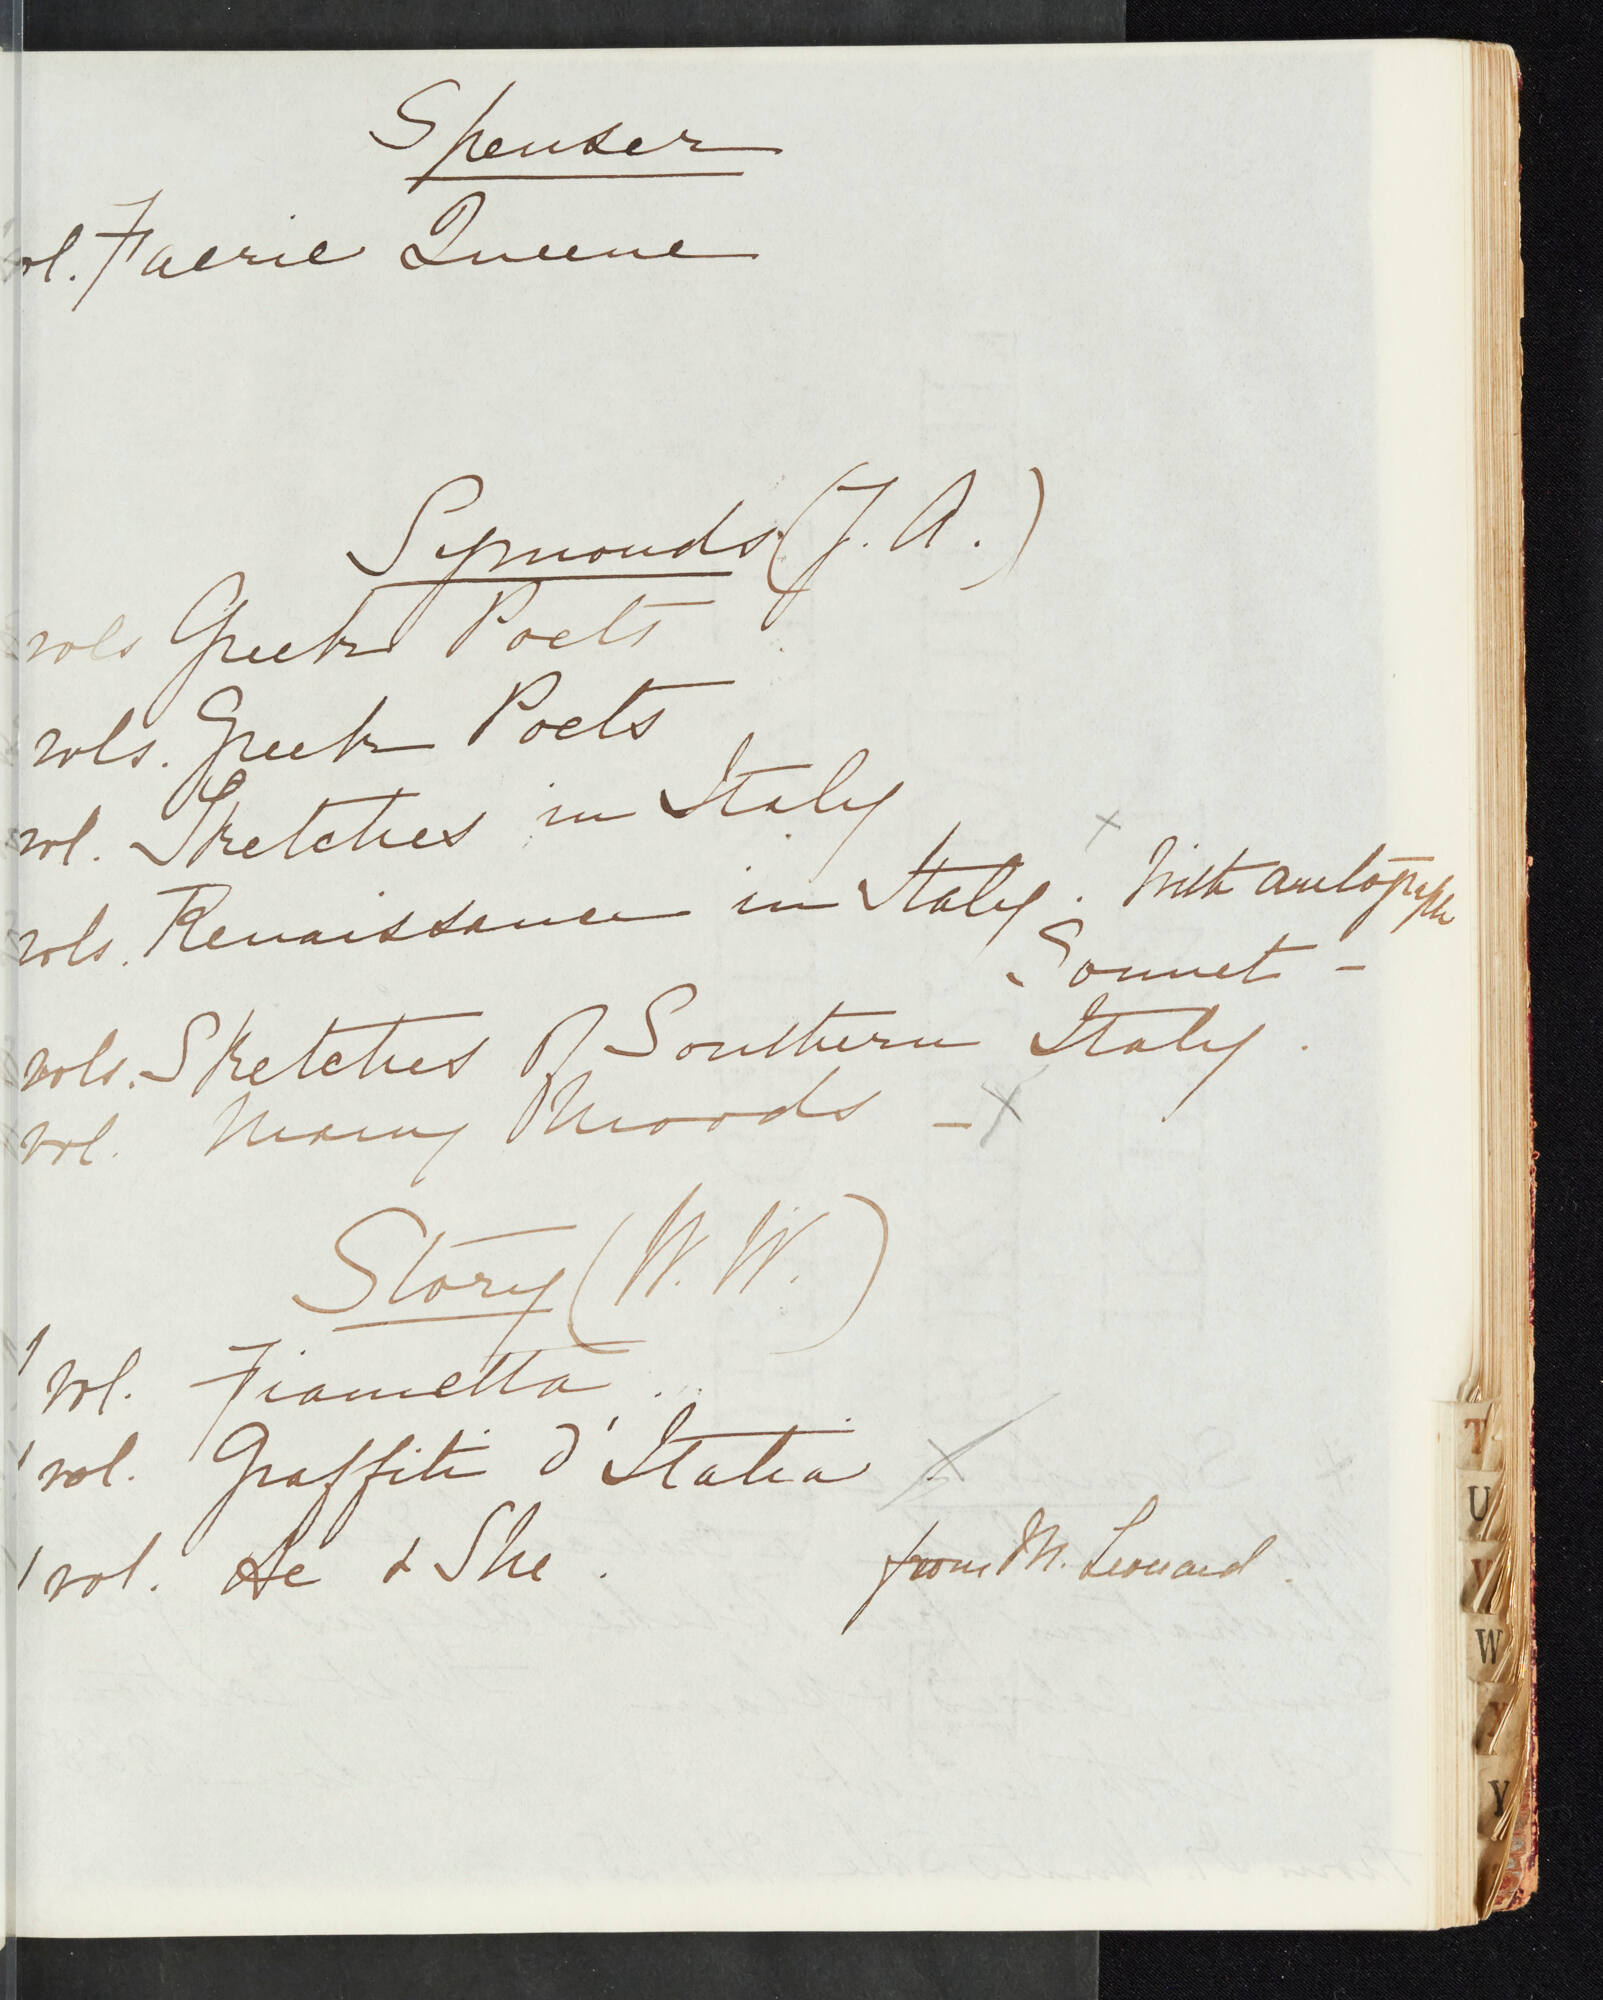 Spenser
vol. Faerie Queene
Symonds (J. A.)
vols Greek Poets
vols. Greek Poets
vol. Sketches in Italy
vols. Renaissance in Italy. With autograph
Sonnet -
vols. Sketches of Southern Italy.
vol. Many Moods - x
Story (W. W.)
1 vol. Fiametta.
1 vol. Graffiti d'Italia x
1 vol. He & She. from M. Leonard.
T
U
V
W
X
Y